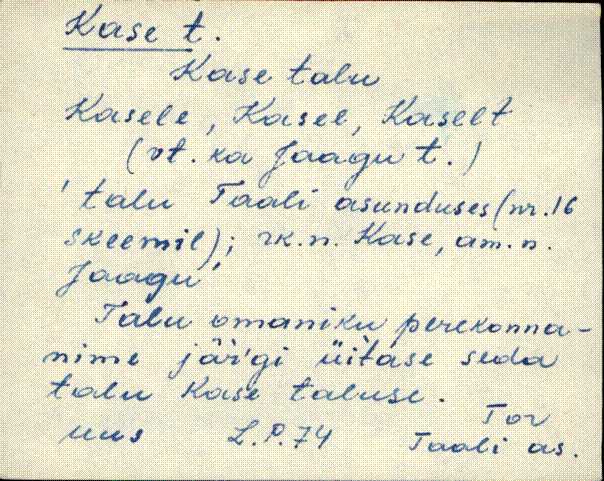 Kase t.
Kase talu
Kasele, Kasel, Kaselt
(vt. ka Jaagu t.)
'talu Taali asunduses (nr. 16
skeemil); rk.n. Kase, am.n.
Jaagu'
Talu omaniku perekonna-
nime jär'gi üitase seda
talu Kase taluse.
Tor
uus L.P.74 Taali as.